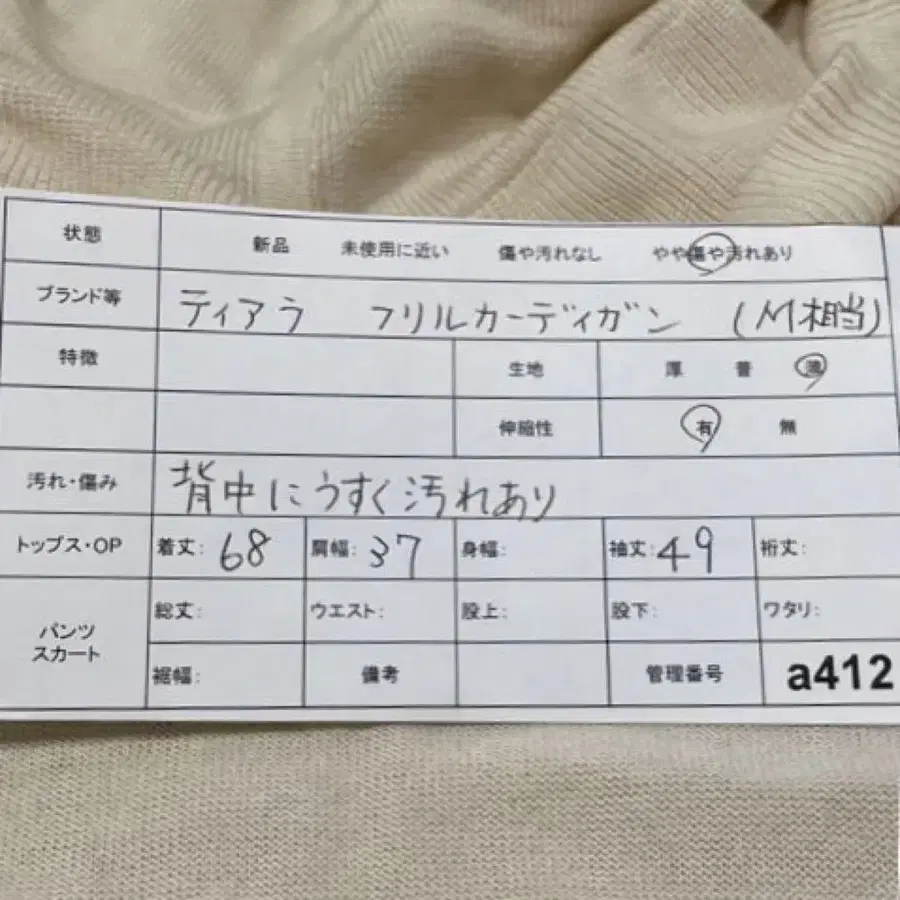 状態 新品 未使用に近い 傷や汚れなし やや傷や汚れあり
ブランド等 ティアラ フリルカーディガン (M相当)
特徴 生地 厚 普 薄
伸縮性 有 無
汚れ・傷み 背中にうすく汚れあり
トップス・OP 着丈: 68 肩幅: 37 身幅: 袖丈: 49 裄丈:
パンツ スカート
総丈: ウエスト: 股上: 股下: ワタリ:
裾幅: 備考 管理番号 a412